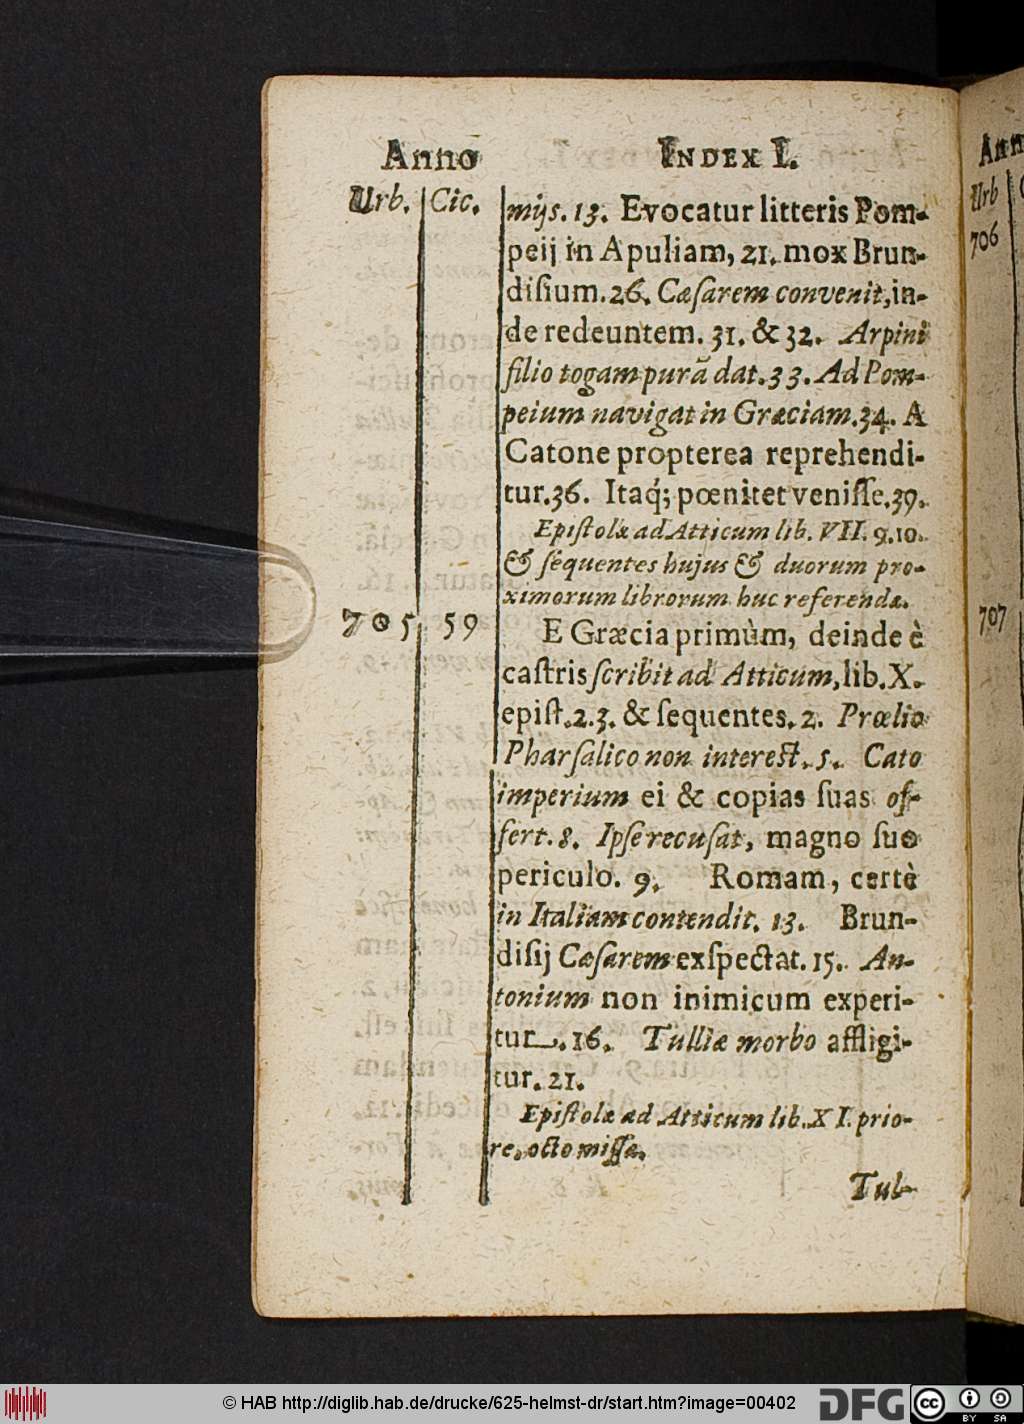 Anno INDEX I.
Urb. Cic. mijs. 13. Evocatur litteris Pom-
peij in Apuliam, 21. mox Brun-
disium. 26. Cæsarem convenit, in-
de redeuntem. 31. & 32. Arpini
filio togam purã dat. 33. Ad Pom-
peium navigat in Græciam. 34. A
Catone propterea reprehendi-
tur. 36. Itaq́; pœnitet venisse. 39.
Epistolæ ad Atticum lib. VII. 9. 10.
& sequentes hujus & duorum pro-
ximorum librorum huc referendæ.
705 59 E Græcia primùm, deinde è
castris scribit ad Atticum, lib. X.
epist. 2. 3. & sequentes. 2. Prœlio
Pharsalico non interest. 5. Cato
imperium ei & copias suas of-
fert. 8. Ipse recusat, magno suo
periculo. 9. Romam, certè
in Italiam contendit. 13. Brun-
disij Cæsarem exspectat. 15. An-
tonium non inimicum experi-
tur. 16. Tulliæ morbo affligi-
tur. 21.
Epistolæ ad Atticum lib. XI. prio-
re, octo missa.
Tul-
Ann
Urb
706
707
© HAB http://diglib.hab.de/drucke/625-helmst-dr/start.htm?image=00402
DFG
cc BY SA